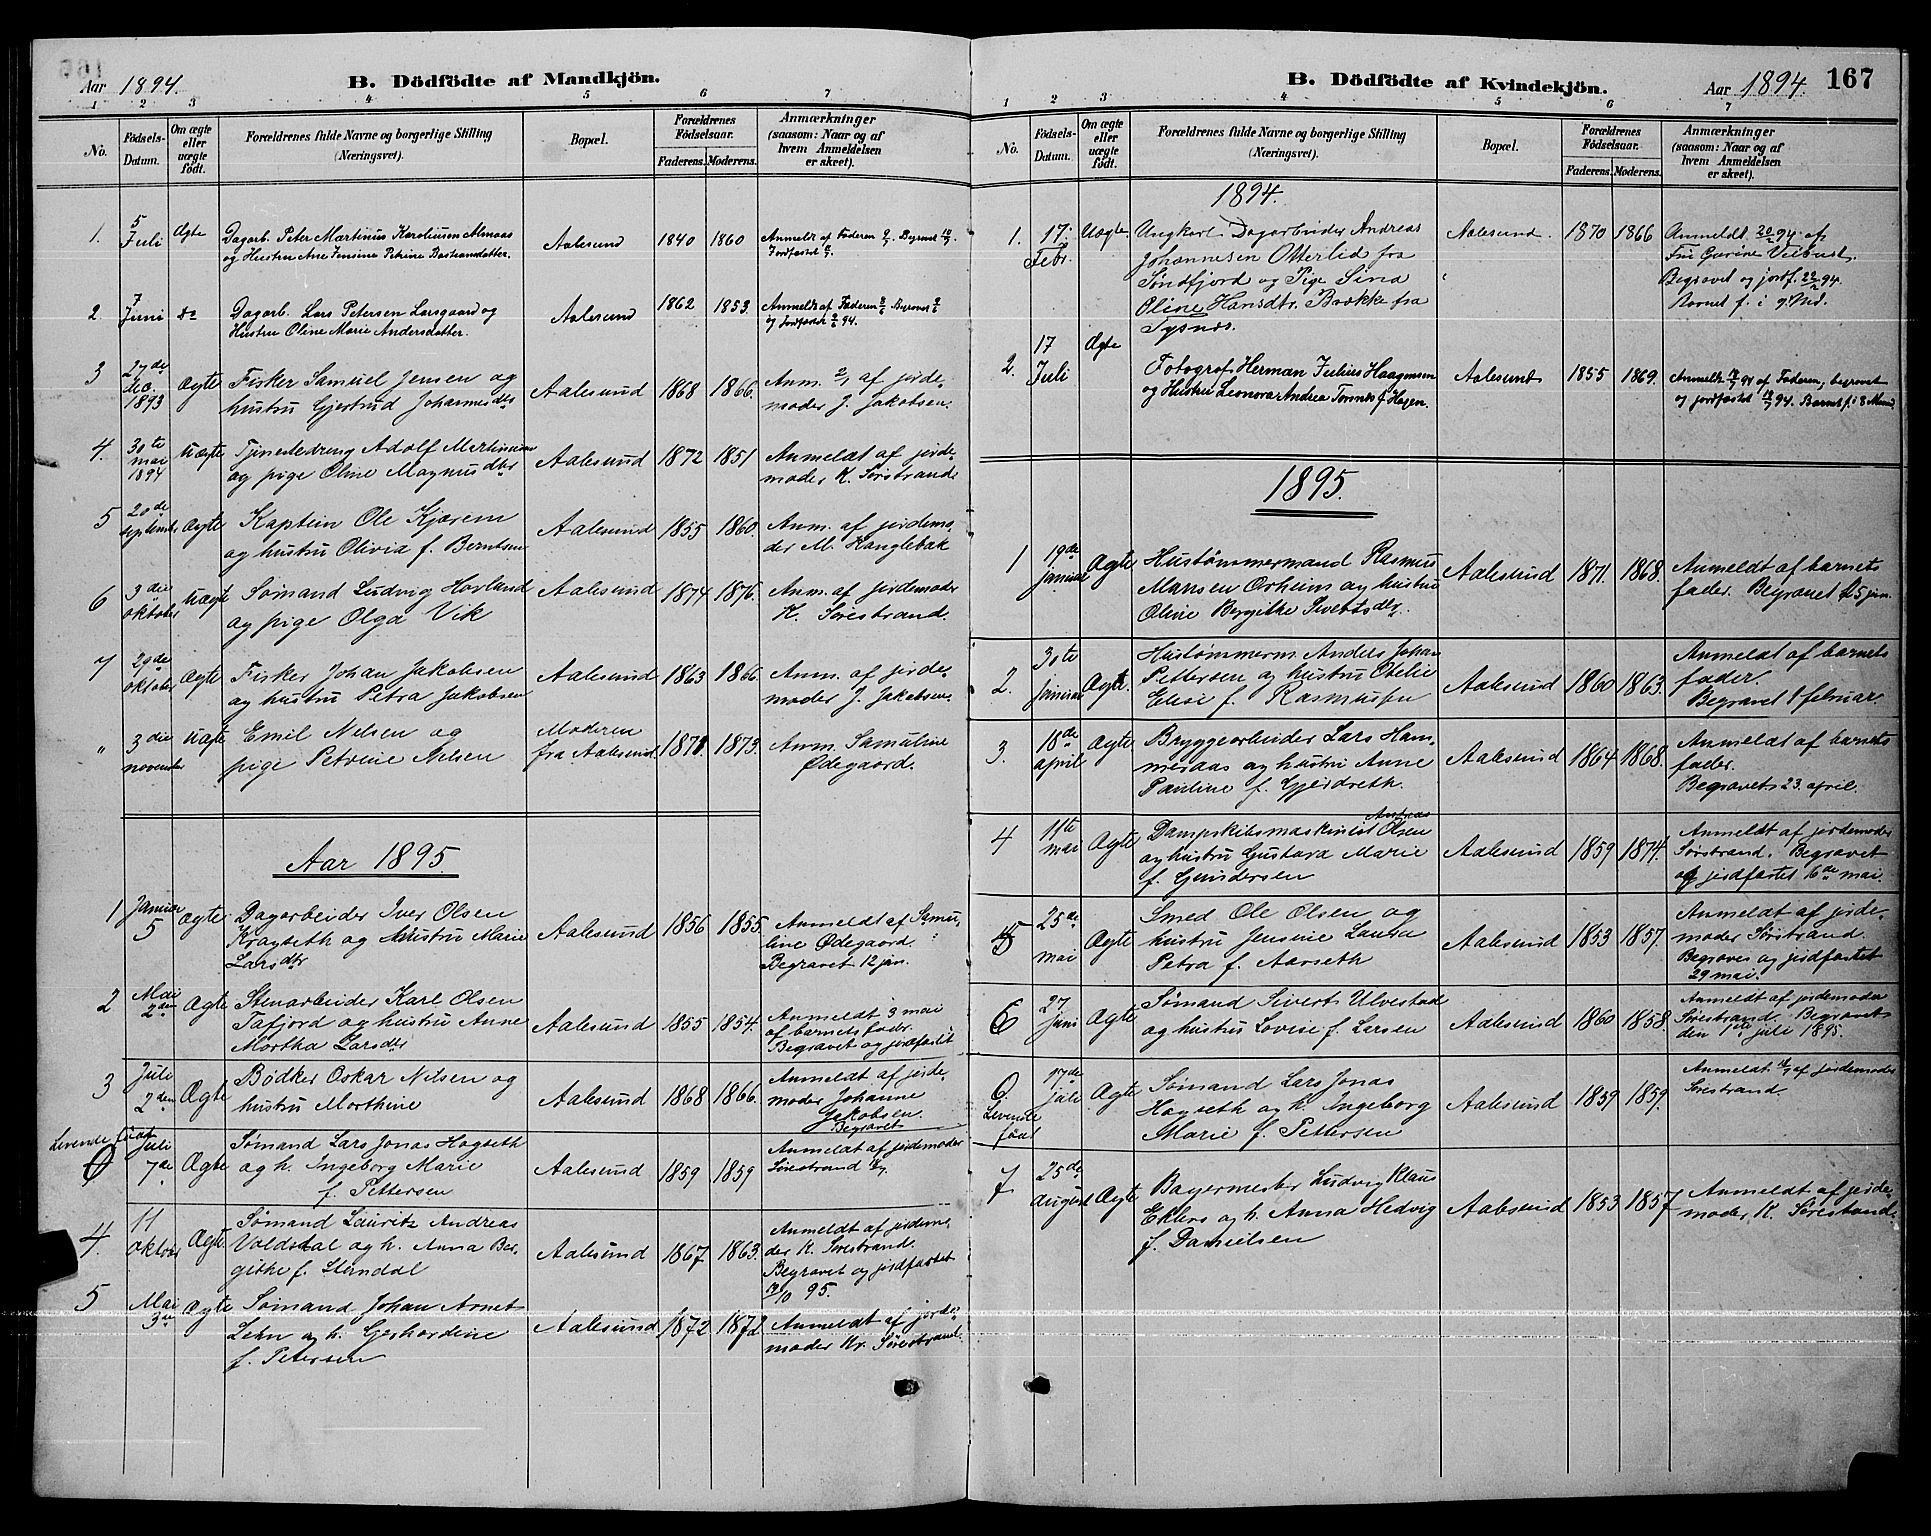 Aar 1894.
B. Dödfödte af Mandkjön.
1 2 3 4 5 6 7
No.
Födsels-Datum.
Om ægte eller uægte födt.
Forældrenes fulde Navne og borgerlige Stilling (Næringsvei).
Bopæl.
Forældrenes Födselsaar.
Faderens. Moderens.
Anmærkninger (saasom: Naar og af hvem Anmeldelsen er skeet).
1. 5 Juli Ægte Dagarb. Peter Martinus Karoliussen Alnaas
og Hustru Ane Jensine Petrine Bastiansdatter.
Aalesund 1840 1860 Anmeldt af Faderen Begravet
Jordfæstet
2. 7 Juni do Dagarb. Lars Petersen Larsgaard og
Hustru Oline Marie Andersdatter.
Aalesund 1862 1853. Anmeldt af Faderen Begravet
og Jordfæstet 94.
3 27de dec. 1893 Ægte Fisker Samuel Jensen og
hustru Gjertrud Johannesdtr
Aalesund 1868 1866. Anm. 2/1 af jorde-
moder J. Jakobsen.
4. 30te mai 1894 Uægte Tjenestedreng Adolf Martinsen
og pige Oline Magnusdtr
Aalesund 1872 1851 Anmeldt af jorde-
moder K. Sørestrand
5 20de septembr Ægte Kaptein Ole Kjærem
og hustru Olivia f. Berntsen
Aalesund 1855 1860. Anm. af jordemo-
der M. Hanglebak
6 3die oktober Uægte Sømand Ludvig Hovland
og pige Olga Vik
Aalesund 1874 1876. Anm. af jordemoder
K. Sørestrand.
7 29de oktober Ægte Fisker Johan Jakobsen
og hustru Petra Jakobsen
Aalesund 1863 1866. Anm. af jorde-
moder J. Jakobsen.
" 3die november Uægte Emil Nilsen og
pige Petrine Nilsen
Moderen
fra Aalesund 1873. Anm. Samuline
Ødegaard.
Aar 1895.
1 Januar 5 Ægte Dagarbeider Iver Olsen
Kragseth og hustru Marie
Larsdtr
Aalesund 1856 1855. Anmeldt af Samu-
line Ødegaard.
Begravet 12 jan.
2 Mai 2den Ægte Stenarbeider Karl Olsen
Tafjord og hustru Anne
Martha Larsdtr
Aalesund 1855 1854. Anmeldt 3 mai
af barnets fader.
Begravet og jordfæstet
3 Juli 2den Ægte Bødker Oskar Nilsen og
hustru Marthine
Aalesund 1868 1866. Anmeldt af jorde-
moder Johanne
Jakobsen.
Begravet
Levende født
0 Juli 7de Ægte Sømand Lars Jonas Hagseth
og h. Ingeborg Marie
f. Pettersen
Aalesund 1859 1859 Anmeldt af jordemoder
Sørestrand
4. 11 oktober Ægte Sømand Lauritz Andreas
Voldsdal og h. Anna Ber-
githe f. Stendal
Aalesund 1867 1863. Anmeldt af jordemo-
der K. Sørestrand.
Begravet og jordfæstet
95.
5 Mai 3die Ægte Sømand Johan Arnet
Lehn og h. Gerhardine
f. Petersen
Aalesund 1872 1872 Anmeldt af jorde-
moder Kr. Sørestrand.
B. Dödfödte af Kvindekjön.
Aar 1894. 167
1 2 3 4 5 6 7
No.
Födsels-Datum.
Om ægte eller uægte födt.
Forældrenes fulde Navne og borgerlige Stilling (Næringsvei).
Bopæl.
Forældrenes Födselsaar.
Faderens. Moderens.
Anmærkninger (saasom: Naar og af hvem Anmeldelsen er skeet).
1894.
1. 17. Febr. Uægte. Ungkarl Dagarbeider Andreas
Johannesen Otterlid fra
Søndfjord og Pige Sina
Oline Hansdtr. Brække fra
Tysnæs.
Aalesund. 1870 1866 Anmeldt 20/2 94 af
Fru Gurine Veibust.
Begravet og jordf. 22/2 94.
Barnet f. i 9. Md.
2. 17 Juli Ægte Fotograf Herman Julius Haagensen
og Hustru Leonora Andrea Tonnes f. Hagen.
Aalesund 1855 1869. Anmeldt 94 af Faderen, begravet
og jordfæstet 94. Barnet f. i 8 Maaned.
1895.
1 19de januar Ægte Hustømmermand Rasmus
Mansen Orheim og hustru
Oline Bergithe Sivertsdtr.
Aalesund 1871. 1868. Anmeldt af barnets
fader. Begravet 25 jan.
2. 30te januar Ægte. Hustømmerm. Anders Johan
Pettersen og hustru Otelie
Elise f. Rasmussen
Aalesund 1860 1863. Anmeldt af barnets
fader.
Begravet 1 februar.
3. 18de april Ægte Bryggearbeider Lars Ham-
meraas og hustru Anne
Pauline f. Gjerdreth.
Aalesund 1864 1868. Anmeldt af barnets
fader.
Begravet 23. april.
4 11te mai Ægte Dampskibsmaskinist Andreas Olsen
og hustru Gustava Marie
f. Gundersen
Aalesund 1859 1874. Anmeldt af jordemoder
Sørstrand. Begravet
og jordfæstet 16de mai.
5 25de mai Ægte Smed Ole Olsen og
hustru Jensine Laura
Petra f. Aarseth
Aalesund 1853 1857. Anmeldt af jorde-
moder Sørstrand.
Begravet og jordfæstet
29 mai.
6 27 juni Ægte Sømand Sivert Ulvestad
og hustru Lovise f. Larsen
Aalesund 1860 1858. Anmeldt af jordemoder
Sørestrand. Begravet
den 1ste juli 1895.
0. Levende født 17de juli Ægte Sømand Lars Jonas
Hagseth og h. Ingeborg
Marie f. Pettersen
Aalesund 1859 1859. Anmeldt af jordemoder
Sørestrand.
7 25de august Ægte Bagermester Ludvig Klaus
Ehlers og h. Anna Hedvig
f. Danielsen
Aalesund 1853 1857 Anmeldt af jorde-
moder K. Sørestrand.